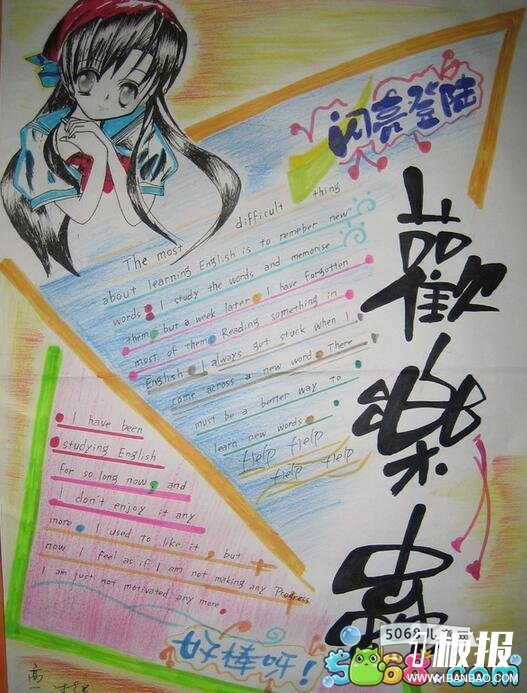 闪亮登陆
The most difficult thing
about learning English is to remeber new
words. I study the words and memorise
them, but a week later, I have forgotten
most of them. Reading something in
English, I always get stuck when I
come across a new word. There
must be a better way to
learn new words.
Help Help
Help Help
I have been
studying English
for so long now, and
I don't enjoy it any
more. I used to like it, but
now I feel as if I am not making any Progress
I am just not motivated any more.
歡
樂
高一
5068儿
5068.com
板报
WWW.1BANBAO.COM